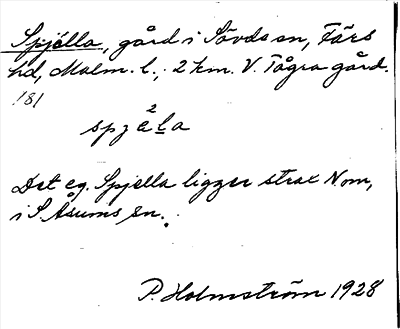 Spjélla, gård i Sövde sn, Färs
hd, Malm. l., 2 km. V. Tågra gård.
181
2
spjäla
Det eg. Spjella ligger strax N om,
i S. Åsums sn.
P. Holmström 1928